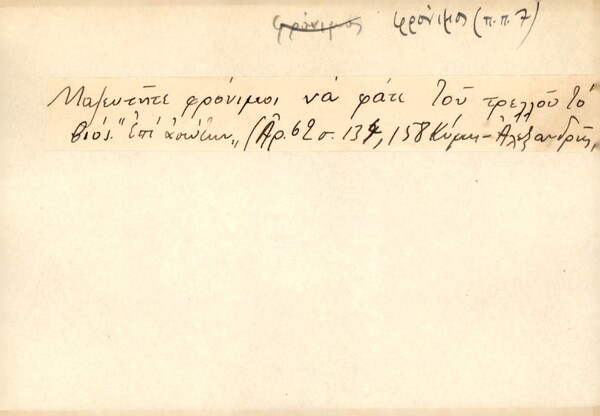 φρόνιμος φρόνιμος (π.π. 7)
Μαζευτῆτε φρόνιμοι νὰ φάτε τοῦ τρελλοῦ τὸ
βιός. "Ἐπὶ ἀσώτων„ (Ἀρ. 62 σ. 134, 158 Κύμη - Ἀλεξανδρῆς,